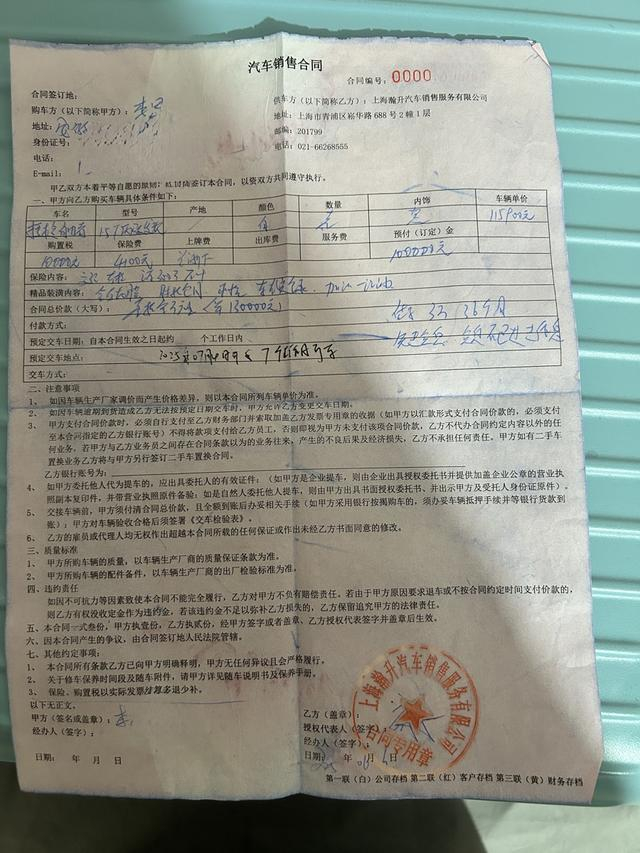 汽车销售合同
合同编号：0000
合同签订地：
购车方（以下简称甲方）：李
地址：安徽
身份证号：
电话：
E-mail：
供车方（以下简称乙方）：上海瀚升汽车销售服务有限公司
地址：上海市青浦区崧华路688号2幢1层
邮编：201799
电话：021-66268555
甲乙双方本着平等自愿的原则，经协商签订本合同，以资双方共同遵守执行。
一、甲方向乙方购买车辆具体条件如下：
车名 型号 产地 颜色 数量 内饰 车辆单价
白 115900元
购置税 保险费 上牌费 出库费 服务费 预付（订定）金
10000元 4100元 10000元
保险内容：
精品装潢内容：
合同总价款（大写）：（￥130000元）
付款方式：
预定交车日期：自本合同生效之日起约 个工作日内
预定交车地点：
交车方式：
二、注意事项
1、 如因车辆生产厂家调价而产生价格差异，则以本合同所列车辆单价为准。
2、 如因车辆逾期到货造成乙方无法按预定日期交车时，甲方允许乙方变更交车日期。
3、 甲方支付合同价款时，必须自行支付至乙方财务部门并索取加盖乙方发票专用章的收据（如甲方以汇款形式支付合同价款的，必须支付
至本合同指定的乙方银行账号）不得将款项支付给乙方员工，否则即视为甲方未支付该项合同价款，乙方不代办合同约定内容以外的任
何业务，若甲方与乙方业务员之间存在合同条款以为的业务往来，产生的不良后果及经济损失，乙方不承担任何责任。甲方如有二手车
置换业务乙方将与甲方另行签订二手车置换合同。
乙方银行账号为：
4、 如甲方委托他人代为提车的，应出具委托人的有效证件：（如甲方是企业提车，则由企业出具授权委托书并提供加盖企业公章的营业执
照副本复印件，并带营业执照原件备验；如是自然人委托他人提车，则由甲方出具书面授权委托书、并出示甲方及受托人身份证原件）。
5、 交接车辆前，甲方须付清合同总价款，且全额到账后办妥相关手续（如甲方采用银行按揭购车的，须办妥车辆抵押手续并等银行货款到
账；）；甲方对车辆验收合格后须签署《交车检验表》。
6、 乙方的雇员或代理人均无权作出超越本合同所载的任何保证或作出未经乙方书面同意的修改。
三、质量标准
1、 甲方所购车辆的质量，以车辆生产厂商的质量保证条款为准。
2、 甲方所购车辆的配件备件，以车辆生产厂商的出厂检验标准为准。
四、违约责任
如因不可抗力等因素致使本合同不能完全履行，乙方对甲方不负有赔偿责任。若由于甲方原因要求退车或不按合同约定时间支付价款的，
则乙方有权没收定金作为违约金，若该违约金不足以弥补乙方损失的，乙方保留追究甲方的法律责任。
五、本合同一式叁份，甲方执壹份，乙方执贰份，经甲方签字或者盖章、乙方授权代表签字并盖章后生效。
六、因本合同产生的争议，由合同签订地人民法院管辖。
七、其他约定事项：
1、 本合同所有条款乙方已向甲方明确释明，甲方无任何异议且会严格履行。
2、 关于修车保养时间段及随车附件，请甲方详见随车说明书及保养手册。
3、 保险、购置税以实际发票结算多退少补。
以下无正文。
甲方（签名或盖章）：李
经办人（签字）：
日期： 年 月 日
乙方（盖章）：
授权代表人（签字）：
经办人（签字）：
日期： 年 月 日
上海瀚升汽车销售服务有限公司
合同专用章
第一联（白）公司存档 第二联（红）客户存档 第三联（黄）财务存档